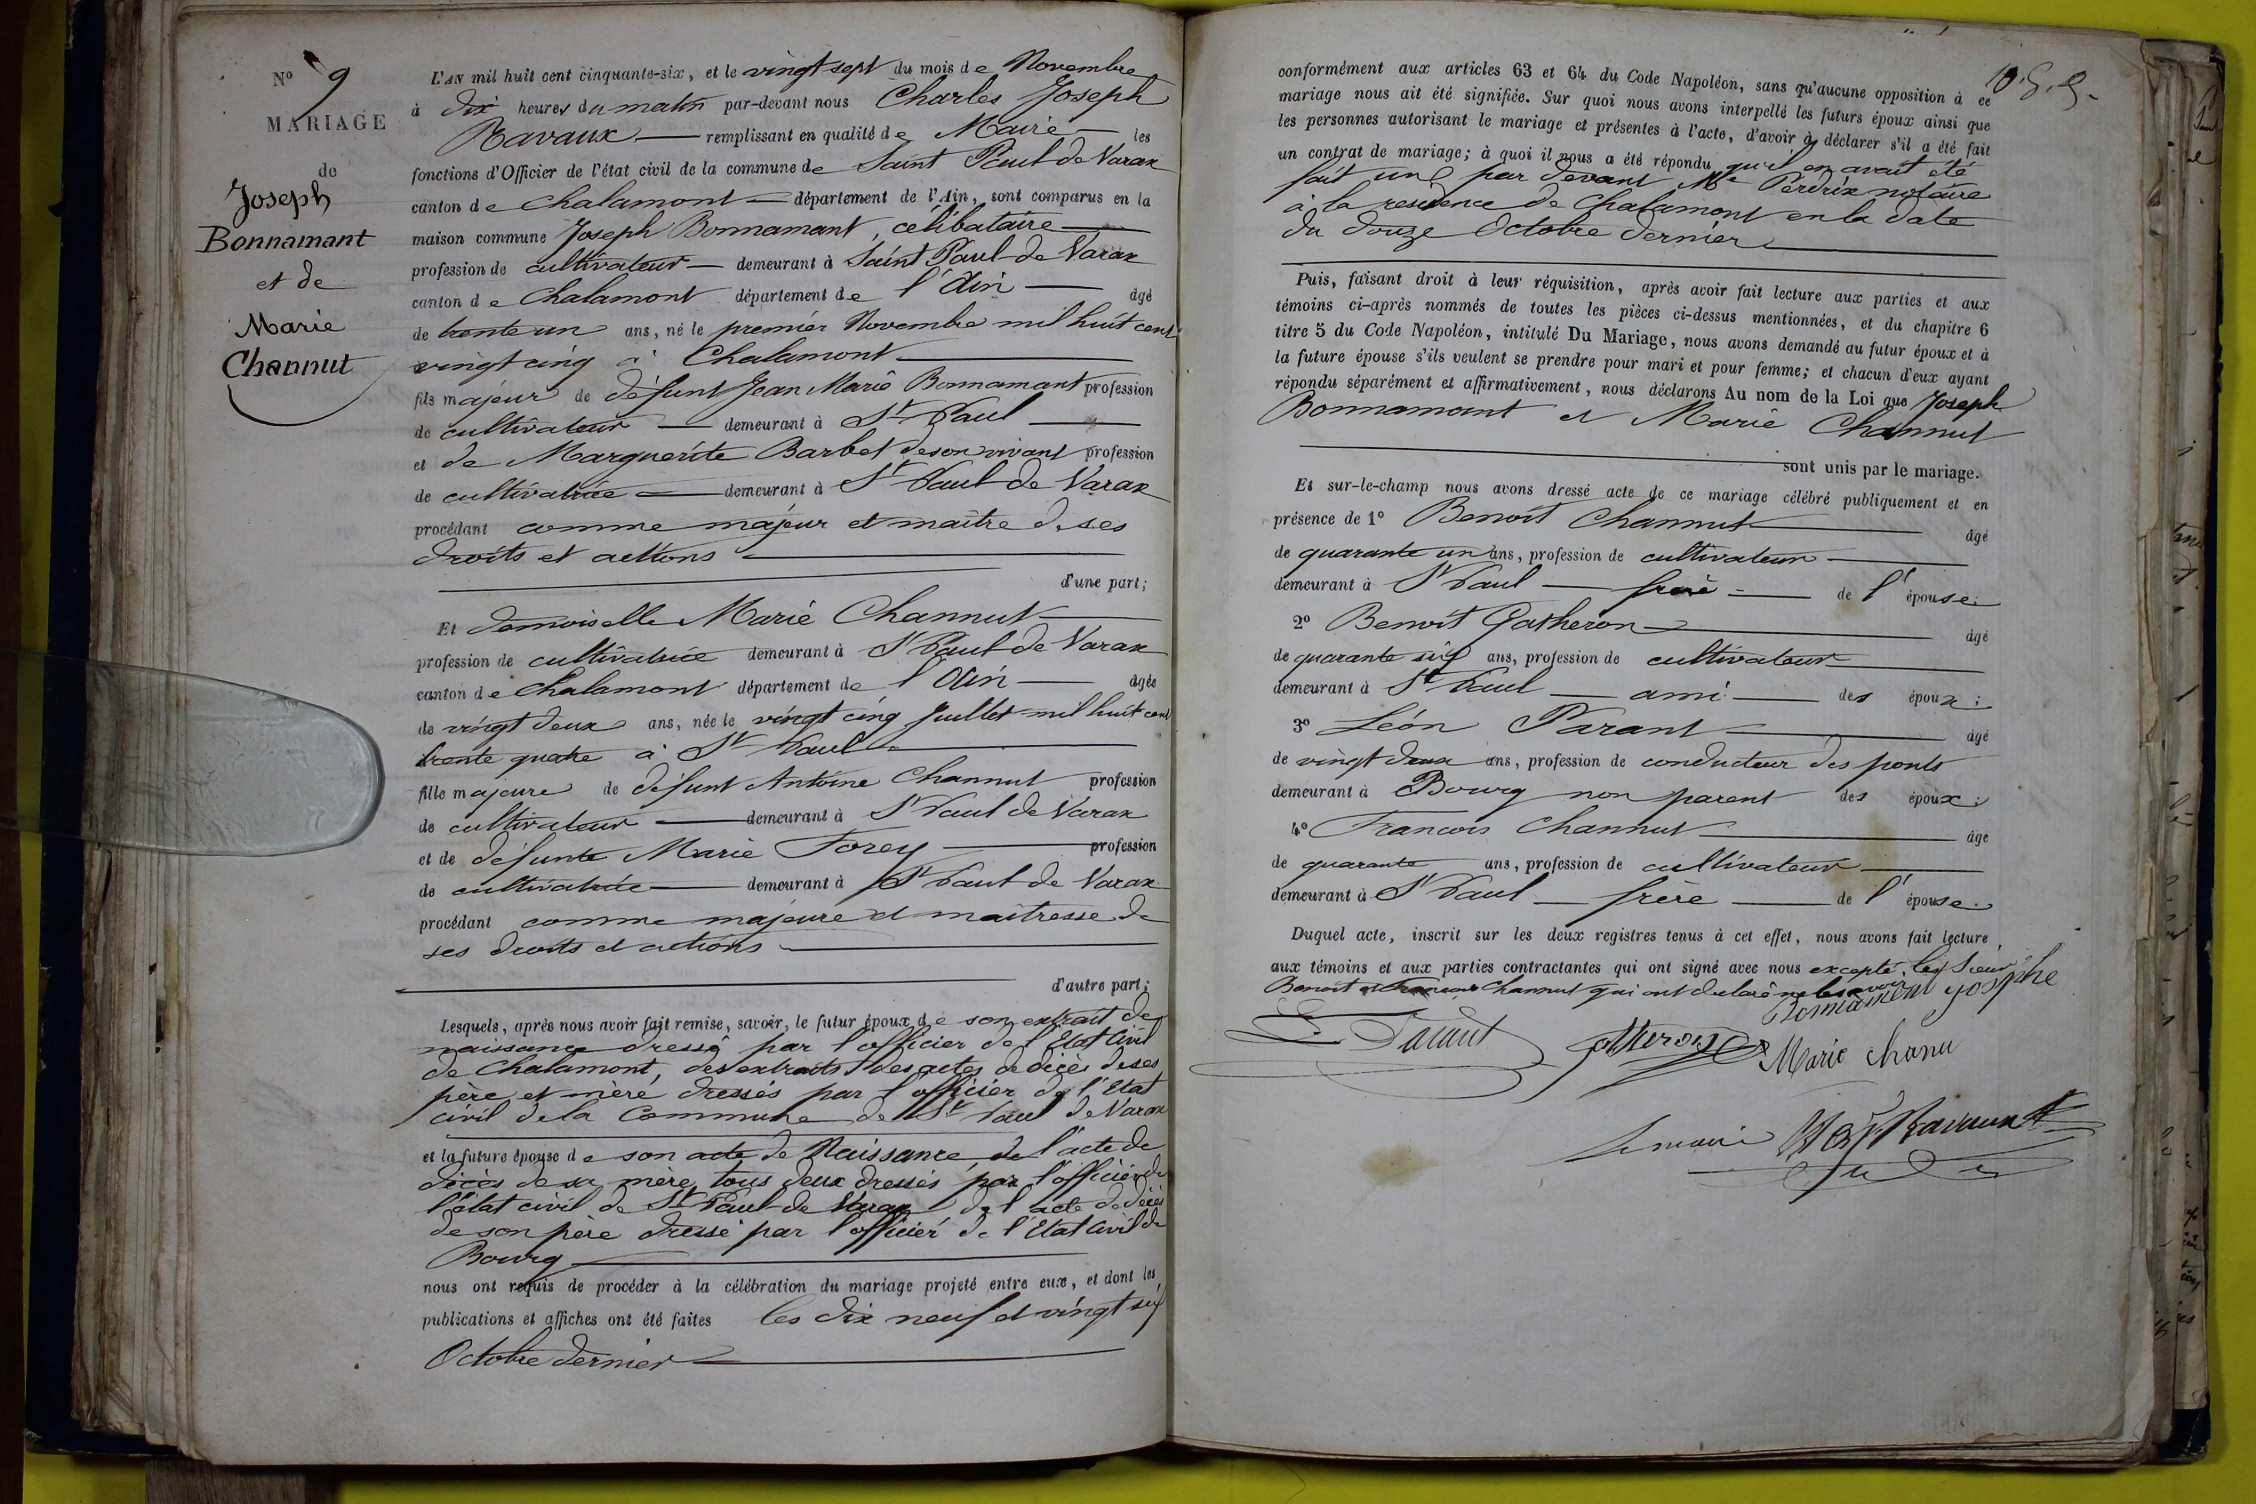 N° 9
MARIAGE
de
Joseph
Bonnamant
et de
Marie
Channut
L'AN mil huit cent cinquante-six, et le vingt sept du mois de Novembre
à dix heures du matin par-devant nous Charles Joseph
Ravaux remplissant en qualité de Maire les
fonctions d'Officier de l'état civil de la commune de Saint Paul de Varax
canton de Chalamont département de l'Ain, sont comparus en la
maison commune Joseph Bonnamant, célibataire
profession de cultivateur demeurant à Saint Paul de Varax
canton de Chalamont département de l'Ain âgé
de trente un ans, né le premier Novembre mil huit cent
vingt cinq à Chalamont
fils majeur de défunt Jean Marie Bonnamant profession
de cultivateur demeurant à St Paul
et de Marguerite Barbet de son vivant profession
de cultivatrice demeurant à St Paul de Varax
procédant comme majeur et maître de ses
droits et actions
d'une part;
Et demoiselle Marie Channut
profession de cultivatrice demeurant à St Paul de Varax
canton de Chalamont département de l'Ain âgée
de vingt deux ans, née le vingt cinq Juillet mil huit cent
trente quatre à St Paul
fille majeure de défunt Antoine Channut profession
de cultivateur demeurant à St Paul de Varax
et de défunte Marie Forey profession
de cultivatrice demeurant à St Paul de Varax
procédant comme majeure et maîtresse de
ses droits et actions
d'autre part;
Lesquels, après nous avoir fait remise, savoir, le futur époux de son extrait de
naissance dressé par l'officier de l'Etat Civil
de Chalamont, des extraits des actes de décès de ses
père et mère dressés par l'officier de l'Etat
civil de la Commune de St Paul de Varax
et la future épouse de son acte de Naissance, de l'acte de
décès de sa mère, tous deux dressés par l'officier de
l'état civil de St Paul de Varax de l'acte de décès
de son père dressé par l'officier de l'Etat Civil de
Bourg
nous ont requis de procéder à la célébration du mariage projeté entre eux, et dont les
publications et affiches ont été faites les dix neuf et vingt six
Octobre dernier
conformément aux articles 63 et 64 du Code Napoléon, sans qu'aucune opposition à ce
mariage nous ait été signifiée. Sur quoi nous avons interpellé les futurs époux ainsi que
les personnes autorisant le mariage et présentes à l'acte, d'avoir à déclarer s'il a été fait
un contrat de mariage; à quoi il nous a été répondu qu'il en avait été
fait un par devant Me Perdrix notaire
à la residence de Chalamont en la date
du douze Octobre dernier
Puis, faisant droit à leur réquisition, après avoir fait lecture aux parties et aux
témoins ci-après nommés de toutes les pièces ci-dessus mentionnées, et du chapitre 6
titre 5 du Code Napoléon, intitulé Du Mariage, nous avons demandé au futur époux et à
la future épouse s'ils veulent se prendre pour mari et pour femme; et chacun d'eux ayant
répondu séparément et affirmativement, nous déclarons Au nom de la Loi que Joseph
Bonnamant et Marie Channut
sont unis par le mariage.
Et sur-le-champ nous avons dressé acte de ce mariage célébré publiquement et en
présence de 1° Benoit Channut âgé
de quarante un ans, profession de cultivateur
demeurant à St Paul frère de l'épouse;
2° Benoit Gatheron âgé
de quarante six ans, profession de cultivateur
demeurant à St Paul ami des époux;
3° Léon Parant âgé
de vingt deux ans, profession de conducteur des ponts
demeurant à Bourg non parent des époux;
4° Francois Channut âgé
de quarante ans, profession de cultivateur
demeurant à St Paul frère de l'épouse.
Duquel acte, inscrit sur les deux registres tenus à cet effet, nous avons fait lecture
aux témoins et aux parties contractantes qui ont signé avec nous excepté les Sieurs
Benoit et Francois Channut qui ont déclaré ne le savoir
Bonnamant Josephe
Parant
Marie Chanu
Le maire Ravaux